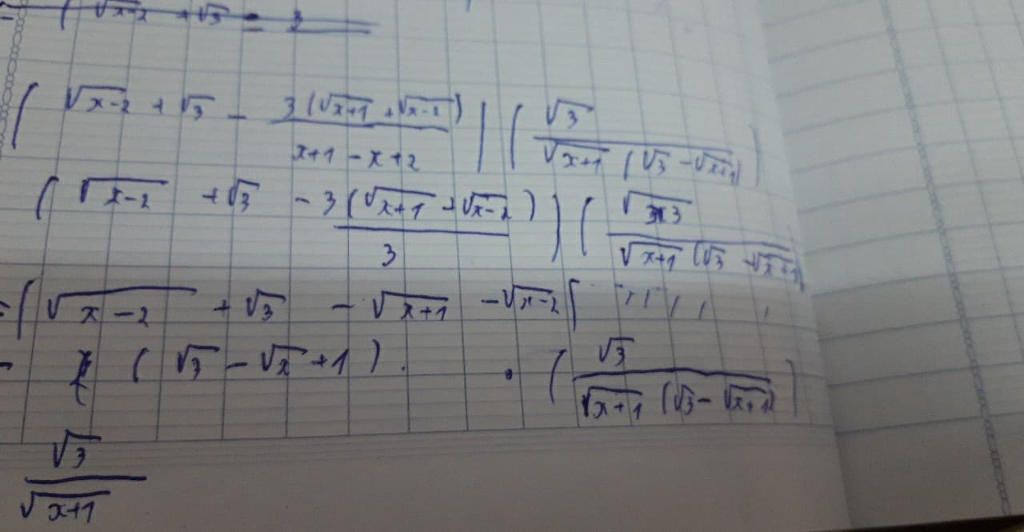 = ( √x-2 + √3 = 3
( √x-2 + √3 - 3(√x+1 + √x-2) / x+1-x+2 ) ( √3 / √x+1 (√3 - √x+1) )
( √x-2 + √3 - 3(√x+1 + √x-2) / 3 ) ( √3 / √x+1 (√3 - √x+1) )
= ( √x-2 + √3 - √x+1 - √x-2 (
= ( √3 - √x+1 ) . ( √3 / √x+1 (√3 - √x+1) )
√3 / √x+1